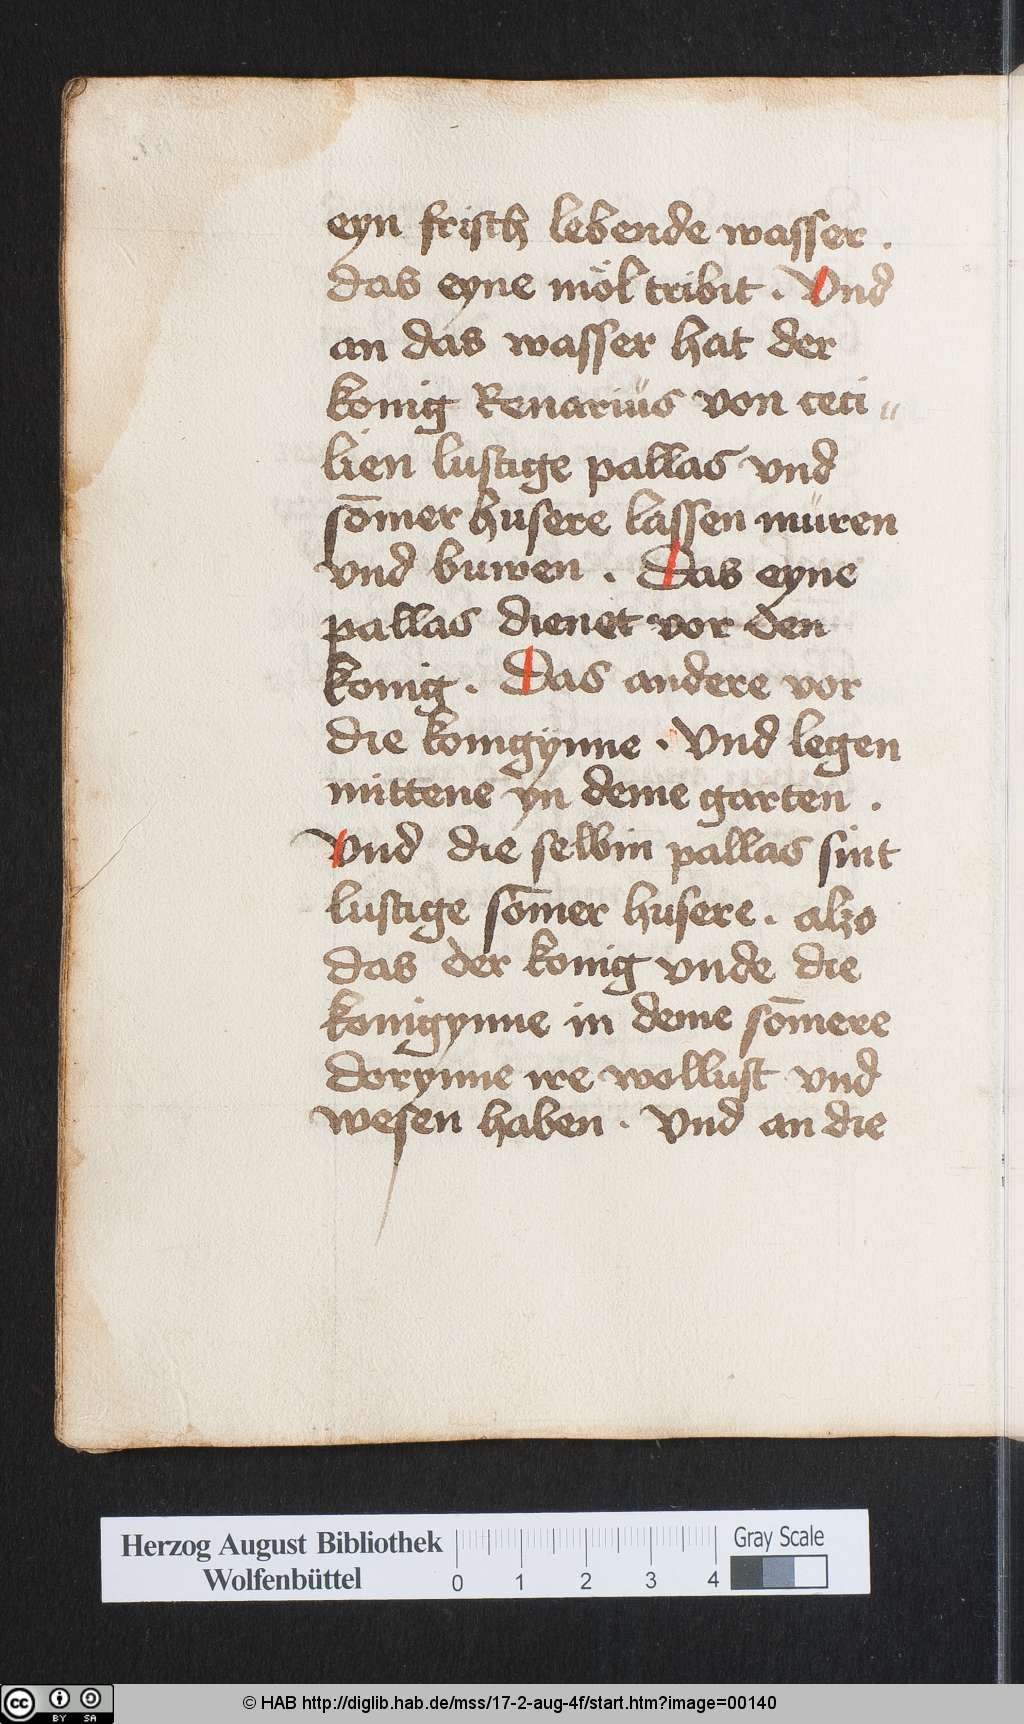 eyn frisch lebende wasser .
das eyne möl tribit . Vnd
an das wasser hat der
konig Renarius von ceci〃
lien lustige pallas vnd
som̄er husere lassen müren
vnd buwen . Das eyne
pallas dienet vor den
konig . Das andere vor
die konigynne . Vnd legen
mittene yn deme garten .
Vnd die selbin pallas sint
lustige som̄er husere . alzo
das der konig vnde die
konigynne in deme som̄ere
dorynne ire wollust vnd
wesen haben . Vnd an die
Herzog August Bibliothek
Wolfenbüttel
0 1 2 3 4
Gray Scale
cc BY SA
© HAB http://diglib.hab.de/mss/17-2-aug-4f/start.htm?image=00140